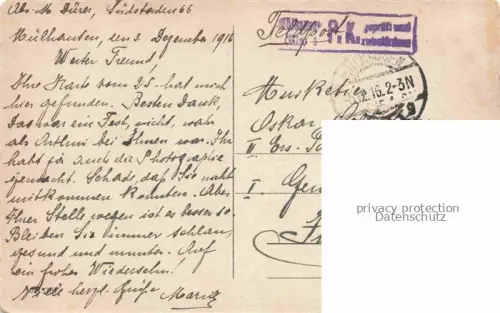 Abs. M. Dürer, Südstaden 66
Mülhausen, den 3. Dezember 1916
Werter Freund,
Ihre Karte vom 25. hat mich
hier gefunden. Besten Dank,
Das war ein Fest, nicht, wahr
als Arthur bei Ihnen war. Ihr
habt ja auch die Photographie
gemacht. Schade, daß Sie nicht
mitkommen konnten. Aber
Ihrer Stelle wegen ist es besser so.
Bleiben Sie immer schlau,
gesund und munter. Auf
ein frohes Wiedersehn!
Viele herzl. Grüße
Feldpost
P.K.
geprüft und
16. 2-3N
Musketier
Oskar
II Ers.
I
privacy protection
Datenschutz